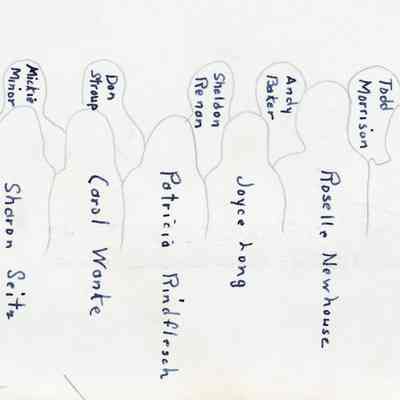 Todd
Morrison
Roselle Newhouse
Andy
Baker
Joyce Long
Sheldon
Penon
Patricia Rindflesch
Don
Stroup
Carol Wonke
Mickie
Minor
Sharon Seitz